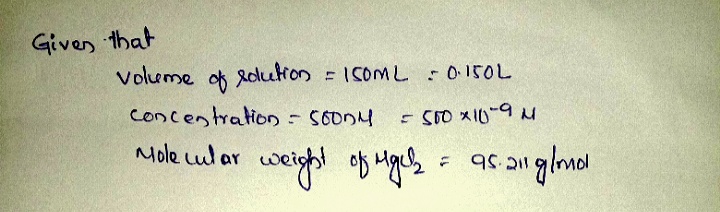 Given that
volume of solution = 150mL = 0.150L
concentration = 500nM = 500 x10-9 M
Molecular weight of MgCl2 = 95.211 g/mol